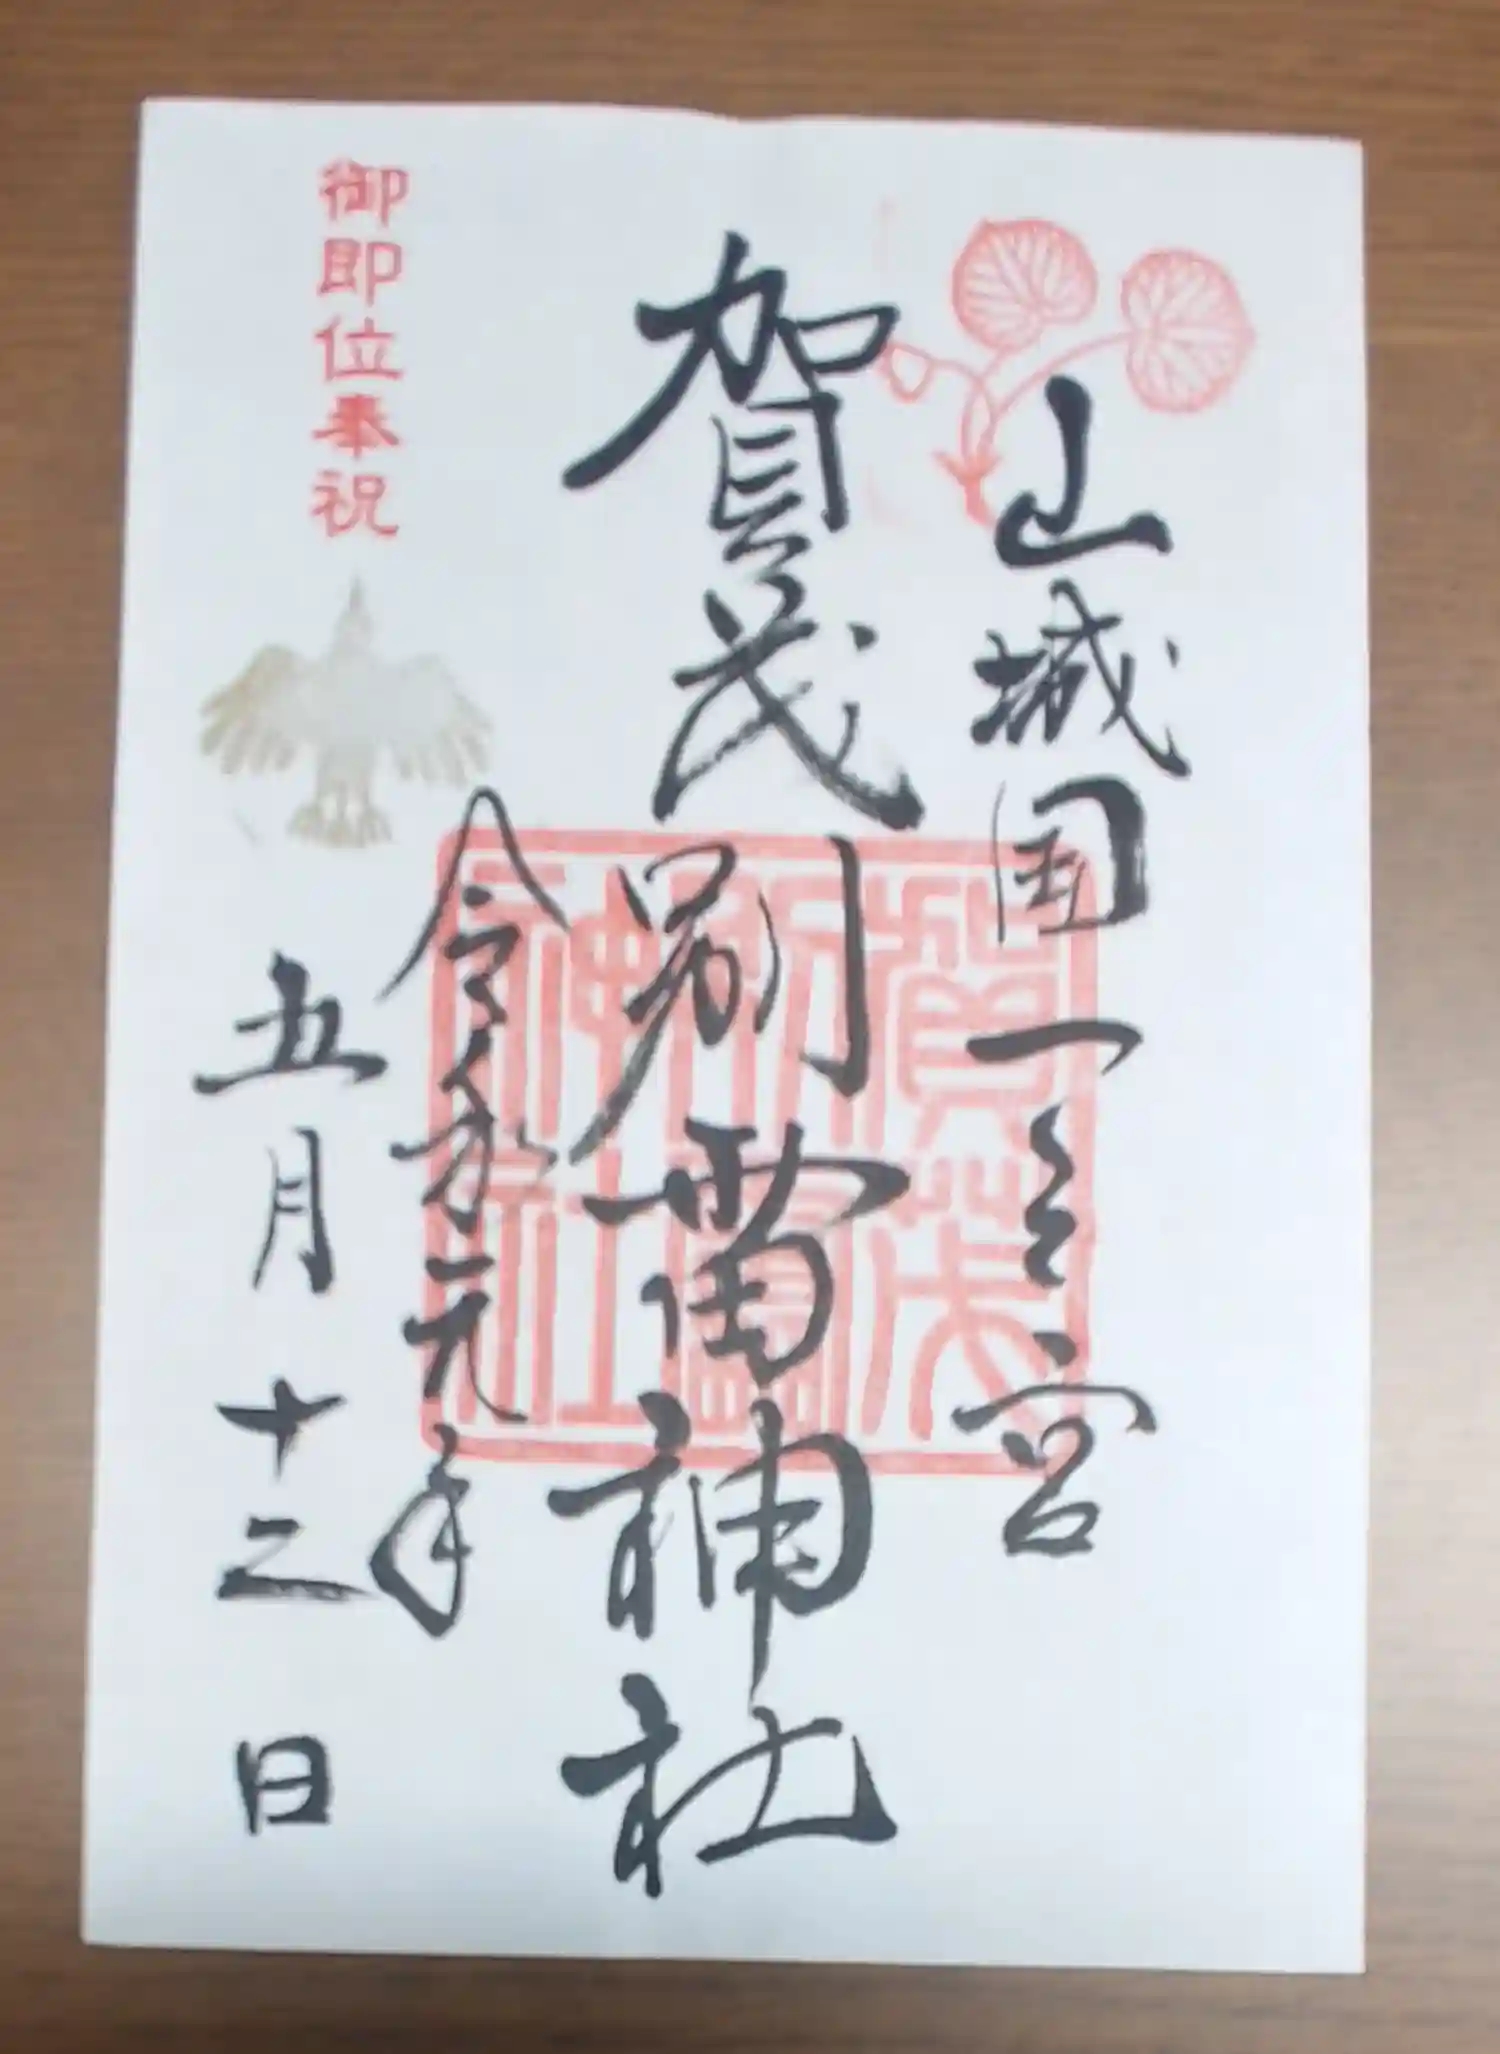 山城国一之宮
賀茂別雷神社
令和元年
五月十二日
御即位奉祝
賀茂
別雷
神社